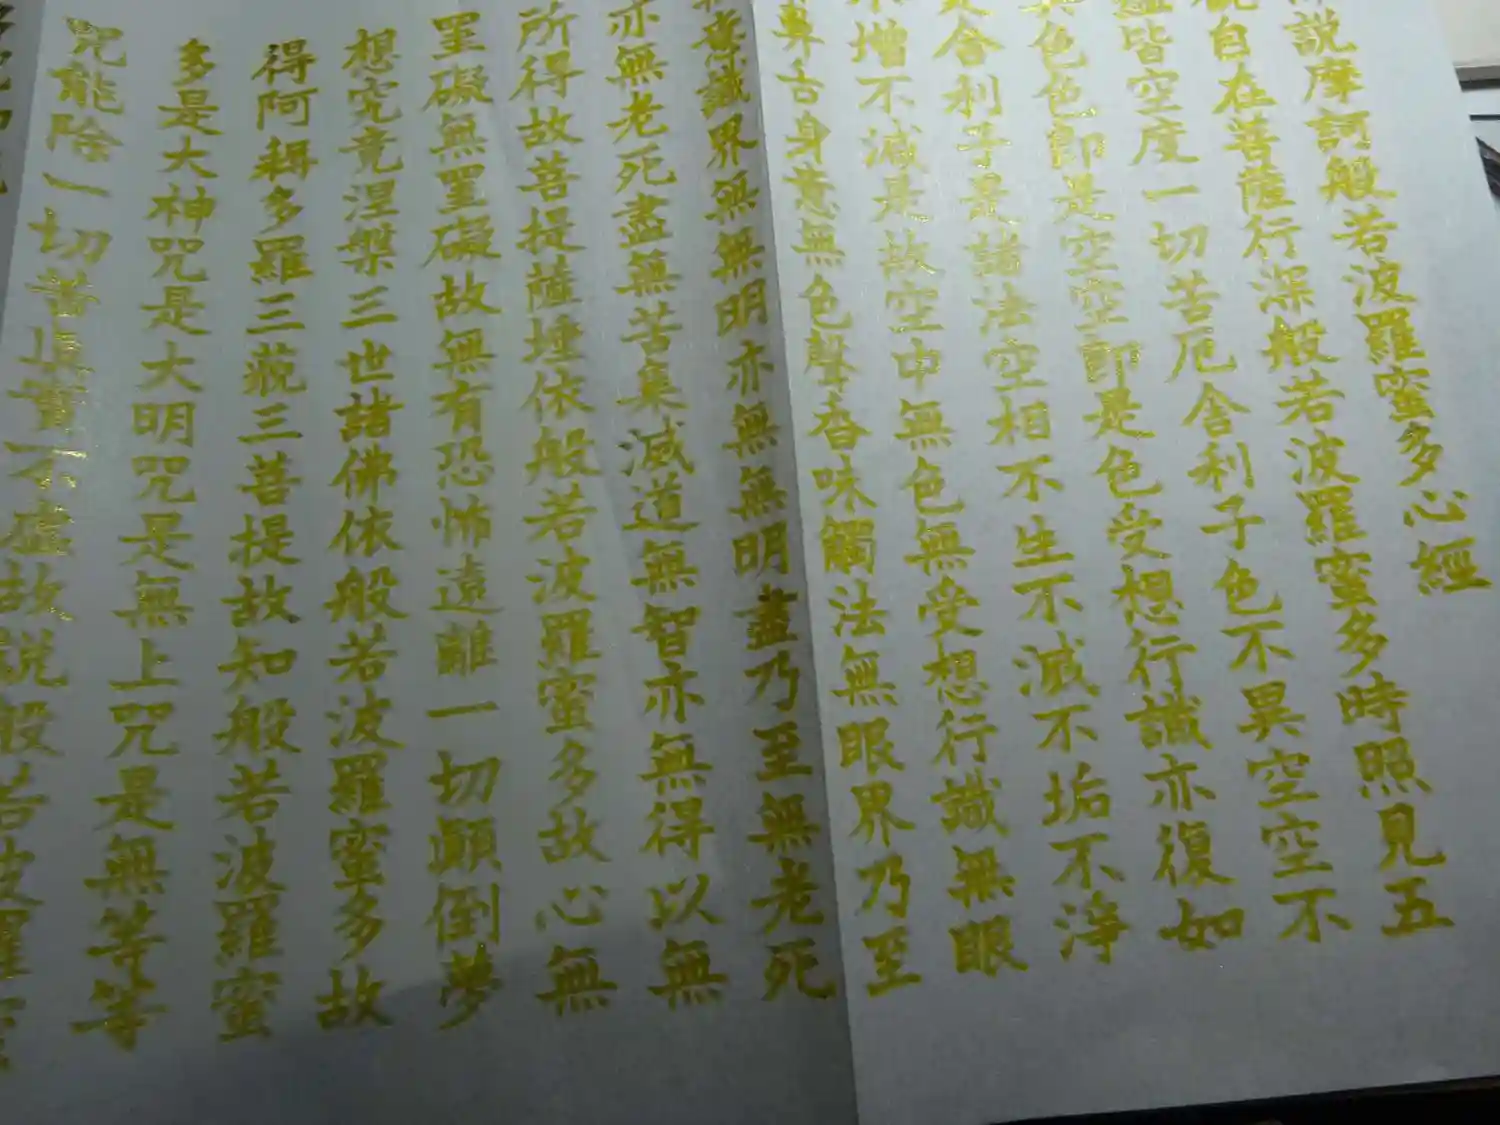 說摩訶般若波羅蜜多心經
自在菩薩行深般若波羅蜜多時照見五
皆空度一切苦厄舍利子色不異空空不
色色即是空空即是色受想行識亦復如
舍利子是諸法空相不生不滅不垢不淨
增不減是故空中無色無受想行識無眼
鼻舌身意無色聲香味觸法無眼界乃至
意識界無無明亦無無明盡乃至無老死
亦無老死盡無苦集滅道無智亦無得以無
所得故菩提薩埵依般若波羅蜜多故心無
罣礙無罣礙故無有恐怖遠離一切顛倒夢
想究竟涅槃三世諸佛依般若波羅蜜多故
得阿耨多羅三藐三菩提故知般若波羅蜜
多是大神咒是大明咒是無上咒是無等等
咒能除一切苦真實不虛故說般若波羅